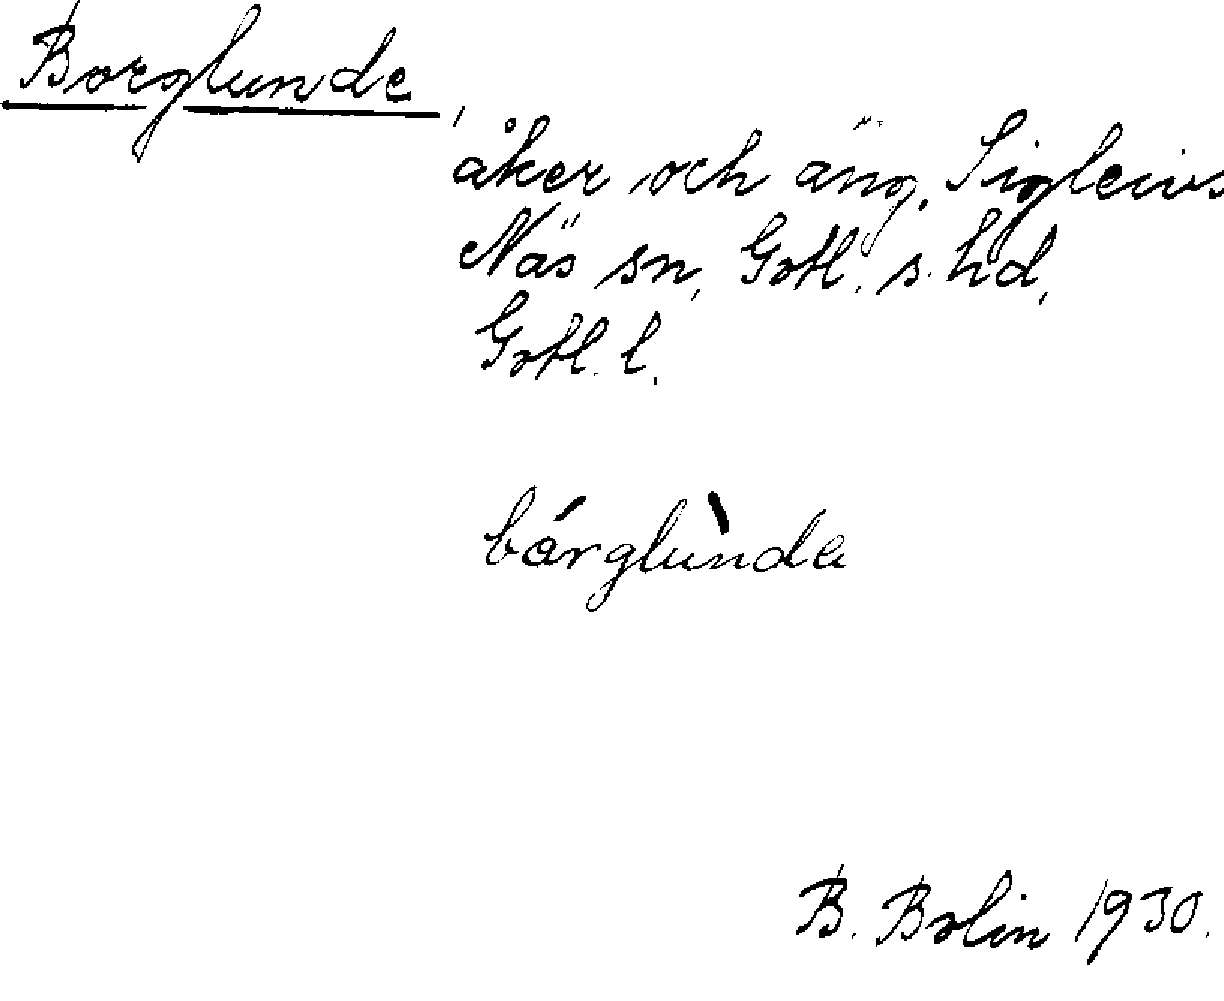 Borglunde,
åker och äng, Sigleivs
Näs sn, Gotl. s. hd,
Gotl. l.
bárglùnda
B. Bolin 1930.